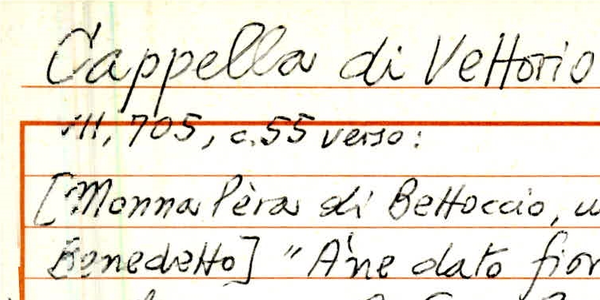 Cappella di Vettorio
III, 705, c.55 verso:
[Monna Pèra di Bettoccio,
Benedetto] "Àne dato fior